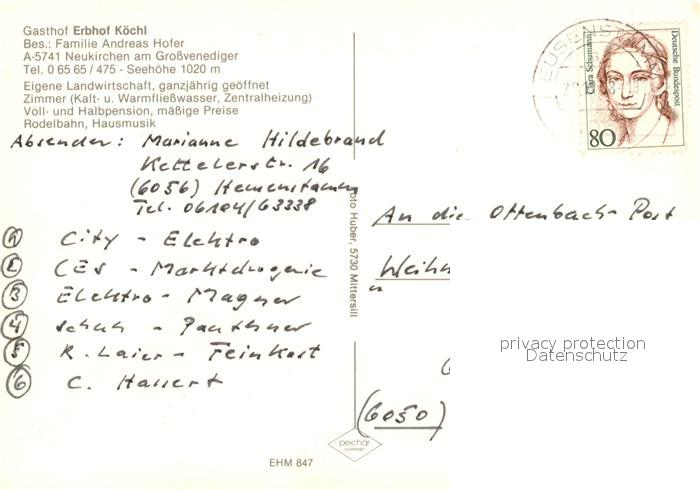 Gasthof Erbhof Köchl
Bes.: Familie Andreas Hofer
A-5741 Neukirchen am Großvenediger
Tel. 0 65 65 / 475 - Seehöhe 1020 m
Eigene Landwirtschaft, ganzjährig geöffnet
Zimmer (Kalt- u. Warmfließwasser, Zentralheizung)
Voll- und Halbpension, mäßige Preise
Rodelbahn, Hausmusik
Absender: Marianne Hildebrand
Kettelerstr. 16
(6056) Heusenstamm
Tel. 06104/63338
① City - Elektro
② CES - Marktdrogerie
③ Elektro - Magner
④ Schuh - Panthner
⑤ R. Laier - Feinkost
⑥ C. Hassert
oto Huber, 5730 Mittersill
EUSENSTAMM
Clara Schumann
Deutsche Bundespost
80
An die Offenbach-Post
Weihn
(6050)
privacy protection
Datenschutz
EHM 847